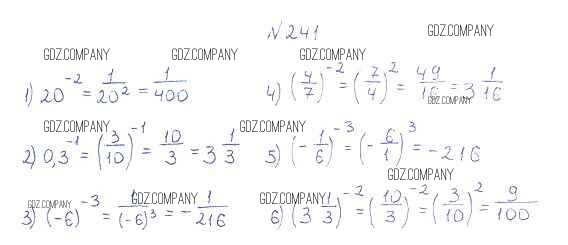 N 241
GDZ.COMPANY
GDZ.COMPANY GDZ.COMPANY GDZ.COMPANY
1) 20^-2 = 1/20^2 = 1/400
4) (4/7)^-2 = (7/4)^2 = 49/16 = 3 1/16
GDZ.COMPANY
GDZ.COMPANY GDZ.COMPANY
2) 0,3^-1 = (3/10)^-1 = 10/3 = 3 1/3
5) (-1/6)^-3 = (-6/1)^3 = -216
GDZ.COMPANY
GDZ.COMPANY GDZ.COMPANY GDZ.COMPANY
3) (-6)^-3 = 1/(-6)^3 = -1/216
6) (3 1/3)^-2 = (10/3)^-2 = (3/10)^2 = 9/100